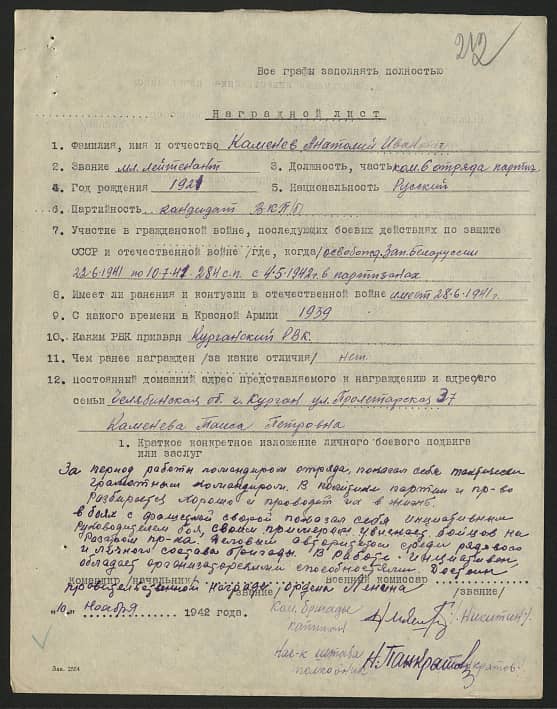 212
Все графы заполнять полностью
Наградной лист
1. Фамилия, имя и отчество Каменев Анатолий Иванович
2. Звание мл. лейтенант 3. Должность, часть ком. 6 отряда партиз.
4. Год рождения 1921 5. Национальность Русский
6. Партийность кандидат ВКПб
7. Участие в гражданской войне, последующих боевых действиях по защите
СССР и отечественной войне /где, когда/ освобожд. Зап. Белоруссии
22-6-1941 по 10.7.41 284 с.п. с 4-5-1942 г. в партизанах
8. Имеет ли ранения и контузии в отечественной войне имеет 28-6-1941 г.
9. С какого времени в Красной Армии 1939
10. Каким РВК призван Курганский РВК
11. Чем ранее награжден /за какие отличия/ нет
12. постоянный домашний адрес представляемого к награждению и адрес его
семьи Челябинская об. г. Курган ул. Пролетарская 37
Каменева Таиса Петровна
1. Краткое конкретное изложение личного боевого подвига
или заслуг
За период работы командиром отряда, показал себя тактически
грамотным командиром. В политике партии и пр-во
разбирается хорошо и проводит их в жизнь.
В боях с фашистской сворой показал себя инициативным
руководителем боя, своим примером увлекает бойцов на
разгром пр-ка. Деловым авторитетом среди рядового
и личного состава бригады. В работе инициативен
обладает организаторскими способностями. Достоин
правительственной награды ордена Ленина
командир /начальник/ военный комиссар
/звание/ /звание/
"10" ноября 1942 года.
Ком. бригады
капитан
/Никитин/
Нач-к штаба
полковник
Н. Панкратов
Зак. 2554